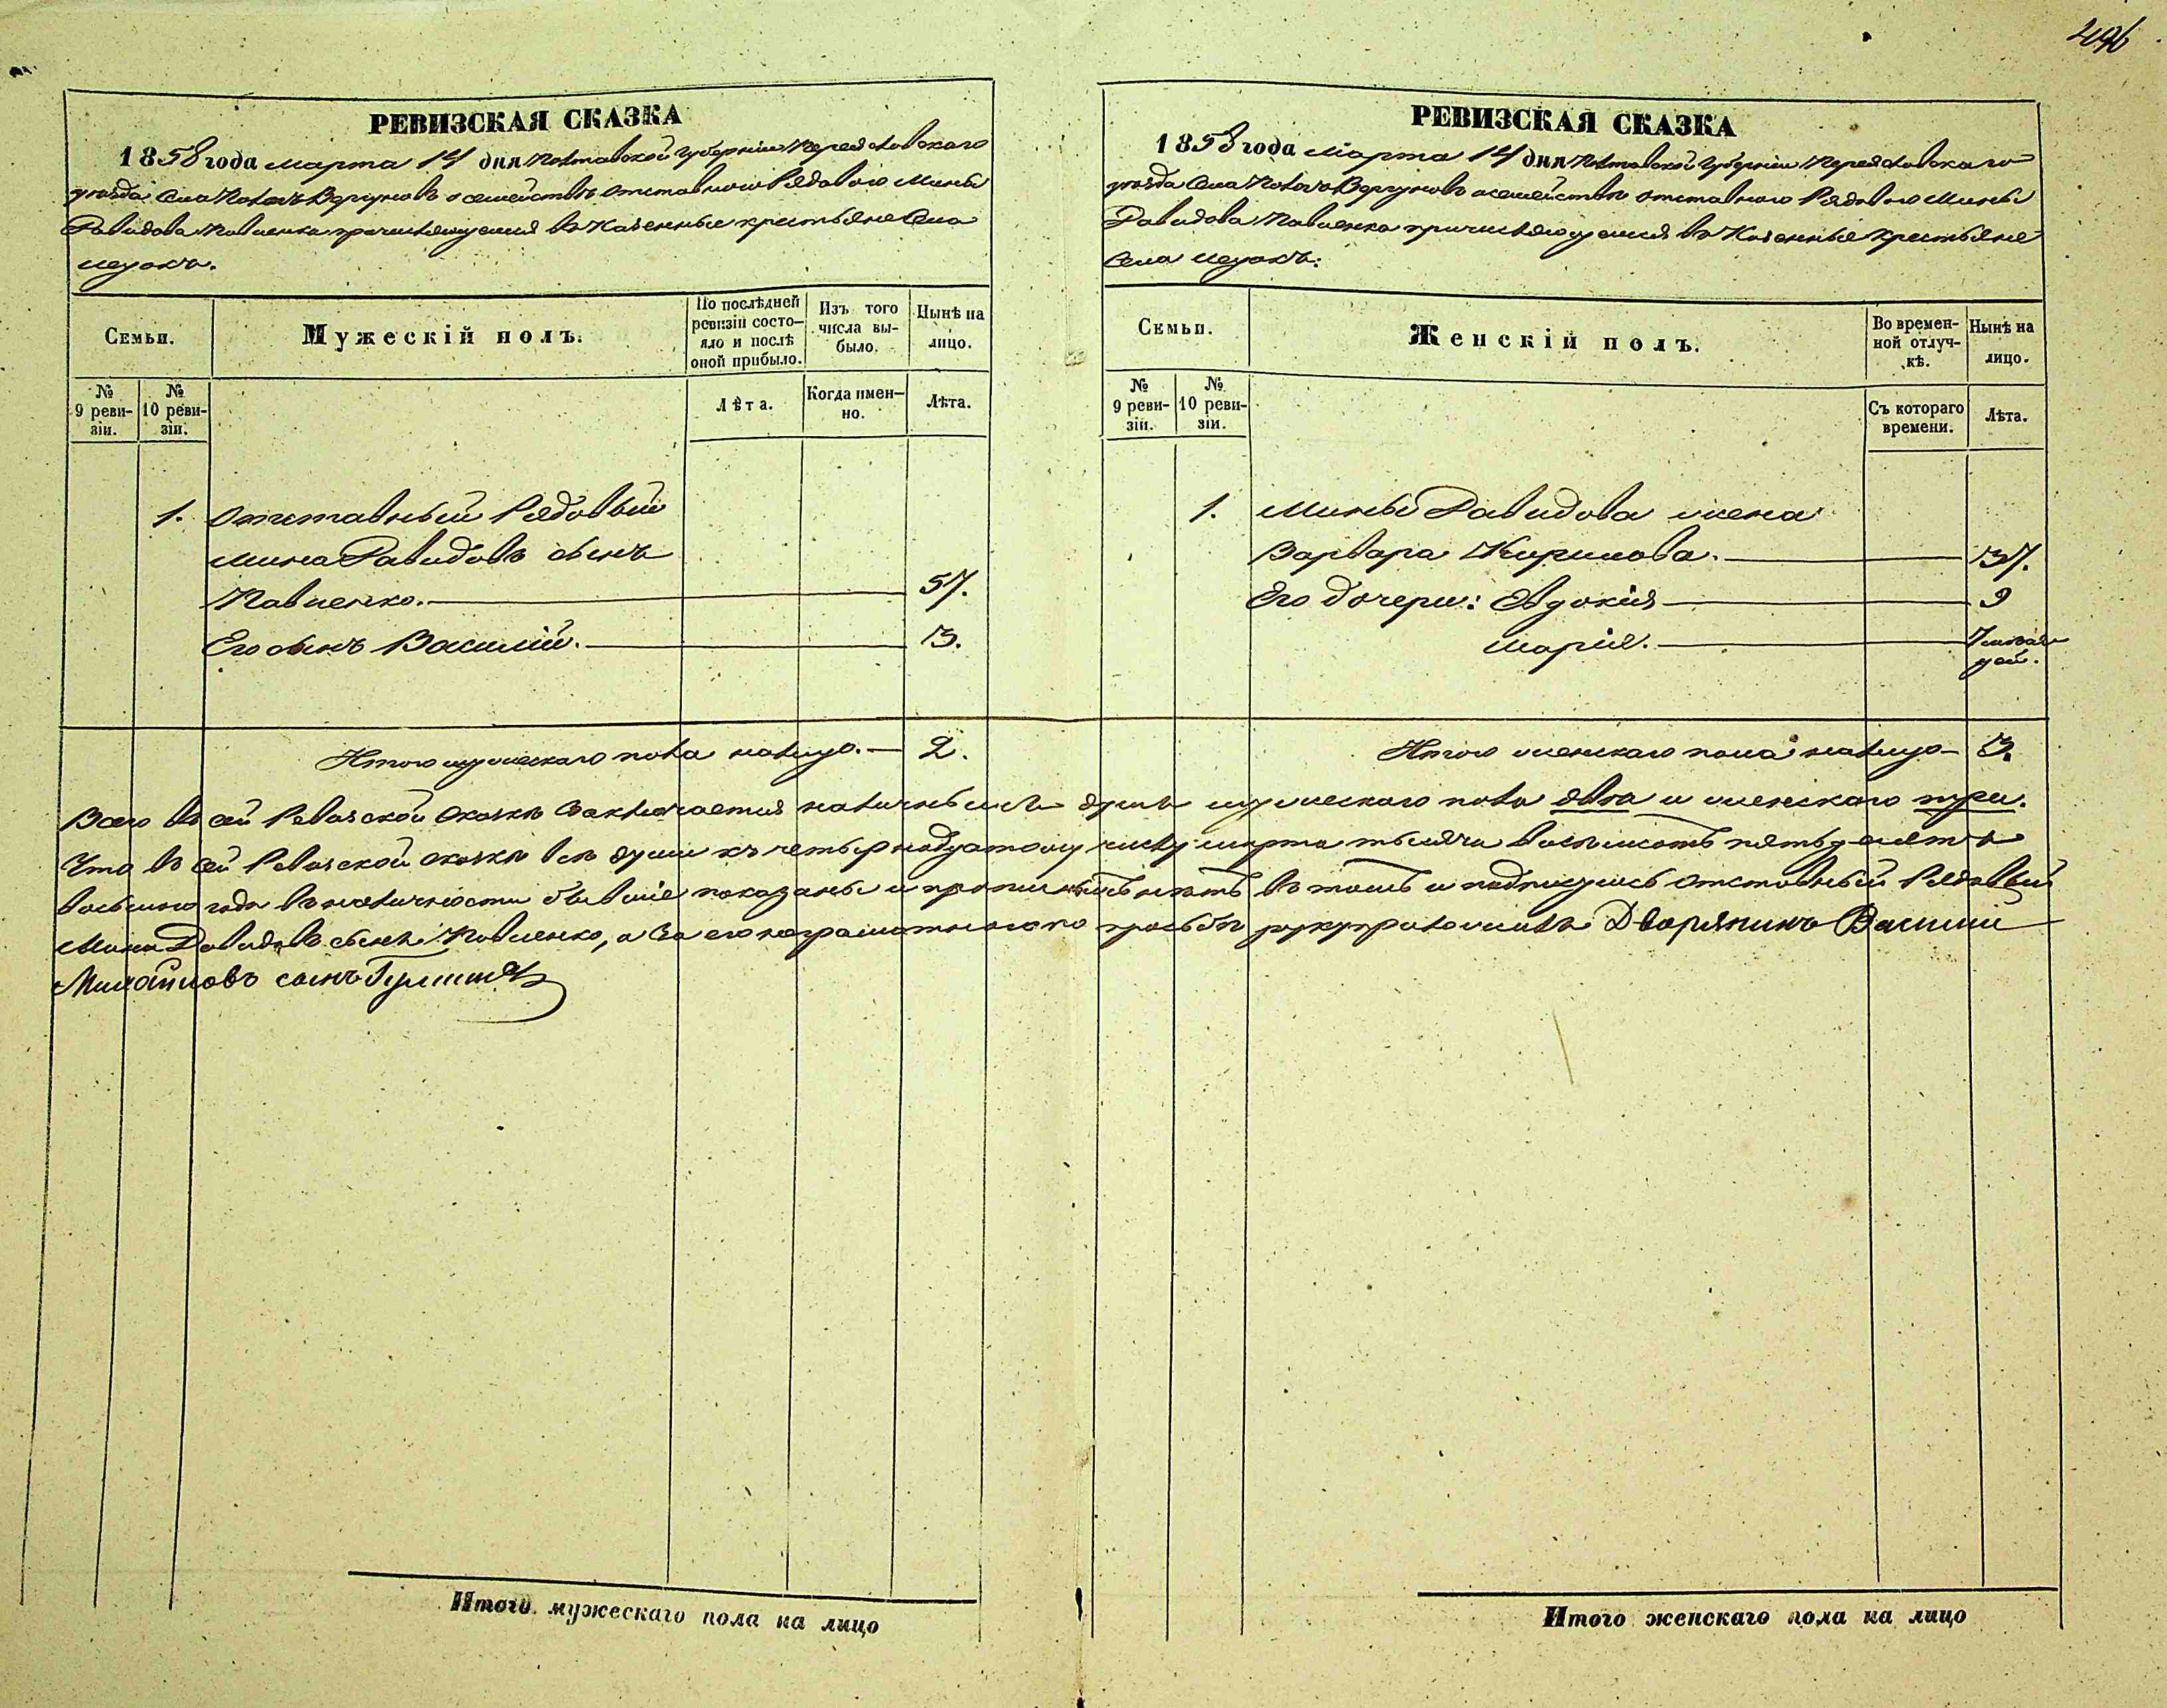 496
РЕВИЗСКАЯ СКАЗКА
1858 года марта 14 дня Полтавской Губерніи Переяловского
уезда Села Вергуновъ о семействѣ отставного Рядового Мины
Давидова Павленка причисляющемся въ Казенные крестьяне Села
Семьи.
Мужескій полъ.
По послѣдней ревизіи состо-
яло и послѣ
оной прибыло.
Изъ того
числа вы-
было.
Нынѣ на
лицо.
№
9 реви-
зіи.
№
10 реви-
зіи.
Лѣта.
Когда имен-
но.
Лѣта.
1. Отставный Рядовый
Мина Давидовъ сынъ
Павленко. 57.
Его сынъ Василій. 3.
Итого мужескаго пола налицо. 2.
РЕВИЗСКАЯ СКАЗКА
1858 года Марта 14 дня Полтавской Губерніи Переяловскаго
уезда Села Вергуновъ о семействѣ отставного Рядового Мины
Давидова Павленка причисляющемся въ Казенные Крестьяне
Села
Семьи.
Женскій полъ.
Во времен-
ной отлуч-
кѣ.
Нынѣ на
лицо.
№
9 реви-
зіи.
№
10 реви-
зіи.
Съ котораго
времени.
Лѣта.
1. Мины Давидова жена
Варвара Кирилова. 37.
Его дочери: Евдокія 9
Марія. 7
Итого женскаго пола налицо 3.
Всего въ сей Ревизской сказкѣ заключается наличныхъ душъ мужескаго пола два и женскаго три.
Что въ сей Ревизской сказкѣ всѣ души къ четырнадцатому числу марта тысяча восемьсотъ пятьдесятъ
восьмого года въ наличности бывшіе показаны и прописныхъ нѣтъ въ томъ и подписуюсь отставный Рядовый
Мина Давидовъ сынъ Павленко, а за его неграмотного по прозьбѣ руку приложилъ Дворянинъ Василій
Михайловъ сынъ
Итого мужескаго пола на лицо
Итого женскаго пола на лицо